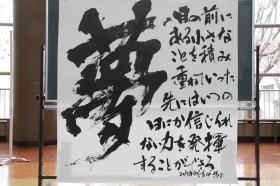 夢
目の前に
ある小さな
ことを積み
重ねていった
先にはいつの
まにか信じられ
ない力を発揮
することができる